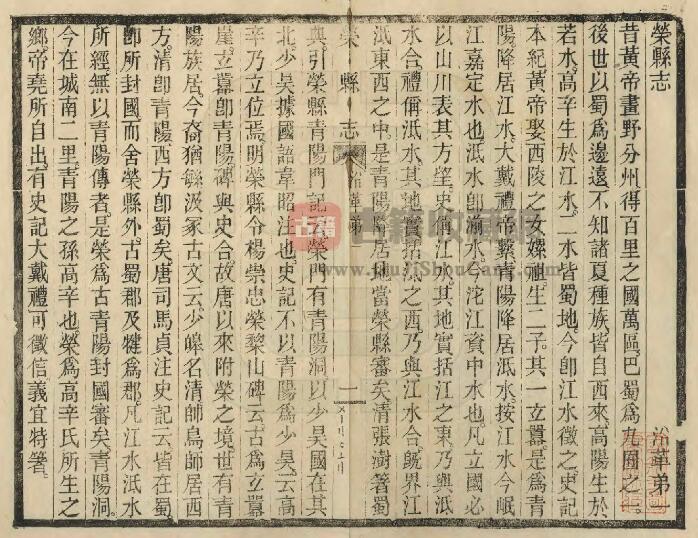 榮縣志
沿革弟一
昔黃帝畫野分州得百里之國萬區巴蜀爲
後世以蜀爲邊遠不知諸夏種族皆自西來高陽生於
若水高辛生於江水二水皆蜀地今卽江水徵之史記
本紀黃帝娶西陵之女嫘祖生二子其一玄囂是爲青
陽降居江水大戴禮帝繫青陽降居泜水按江水今岷
江嘉定水也泜水卽湔水今沱江資中水也凡立國必
以山川表其方望史偁江水其地實括江之東乃與泜
水合禮偁泜水其地實括泜之西乃與江水合旣界江
泜東西之中是青陽所居地當榮縣審矣清張澍著蜀
榮縣志
沿革弟一
一
典引榮縣青陽門記云榮門有青陽洞以少昊國在其
北少昊據國語韋昭注也史記不以青陽爲少昊云高
辛乃立位焉明榮縣令楊崇忠榮黎山碑云古爲玄囂
崖玄囂卽青陽碑與史合故唐以來附榮之境世有青
陽族居今裔猶緐汲冢古文云少皞名清師鳥師居西
方清卽青陽西方卽蜀矣唐司馬貞注史記云皆在蜀
卽所封國而舍榮縣外古蜀郡及犍爲郡凡江水泜水
所經無以青陽傳者是榮爲古青陽封國審矣青陽洞
今在城南二里青陽之孫高辛也榮爲高辛氏所生之
鄉帝堯所自出有史記大戴禮可徵信義宜特箸
古籍
古籍收藏
www.GujiShouCang.com